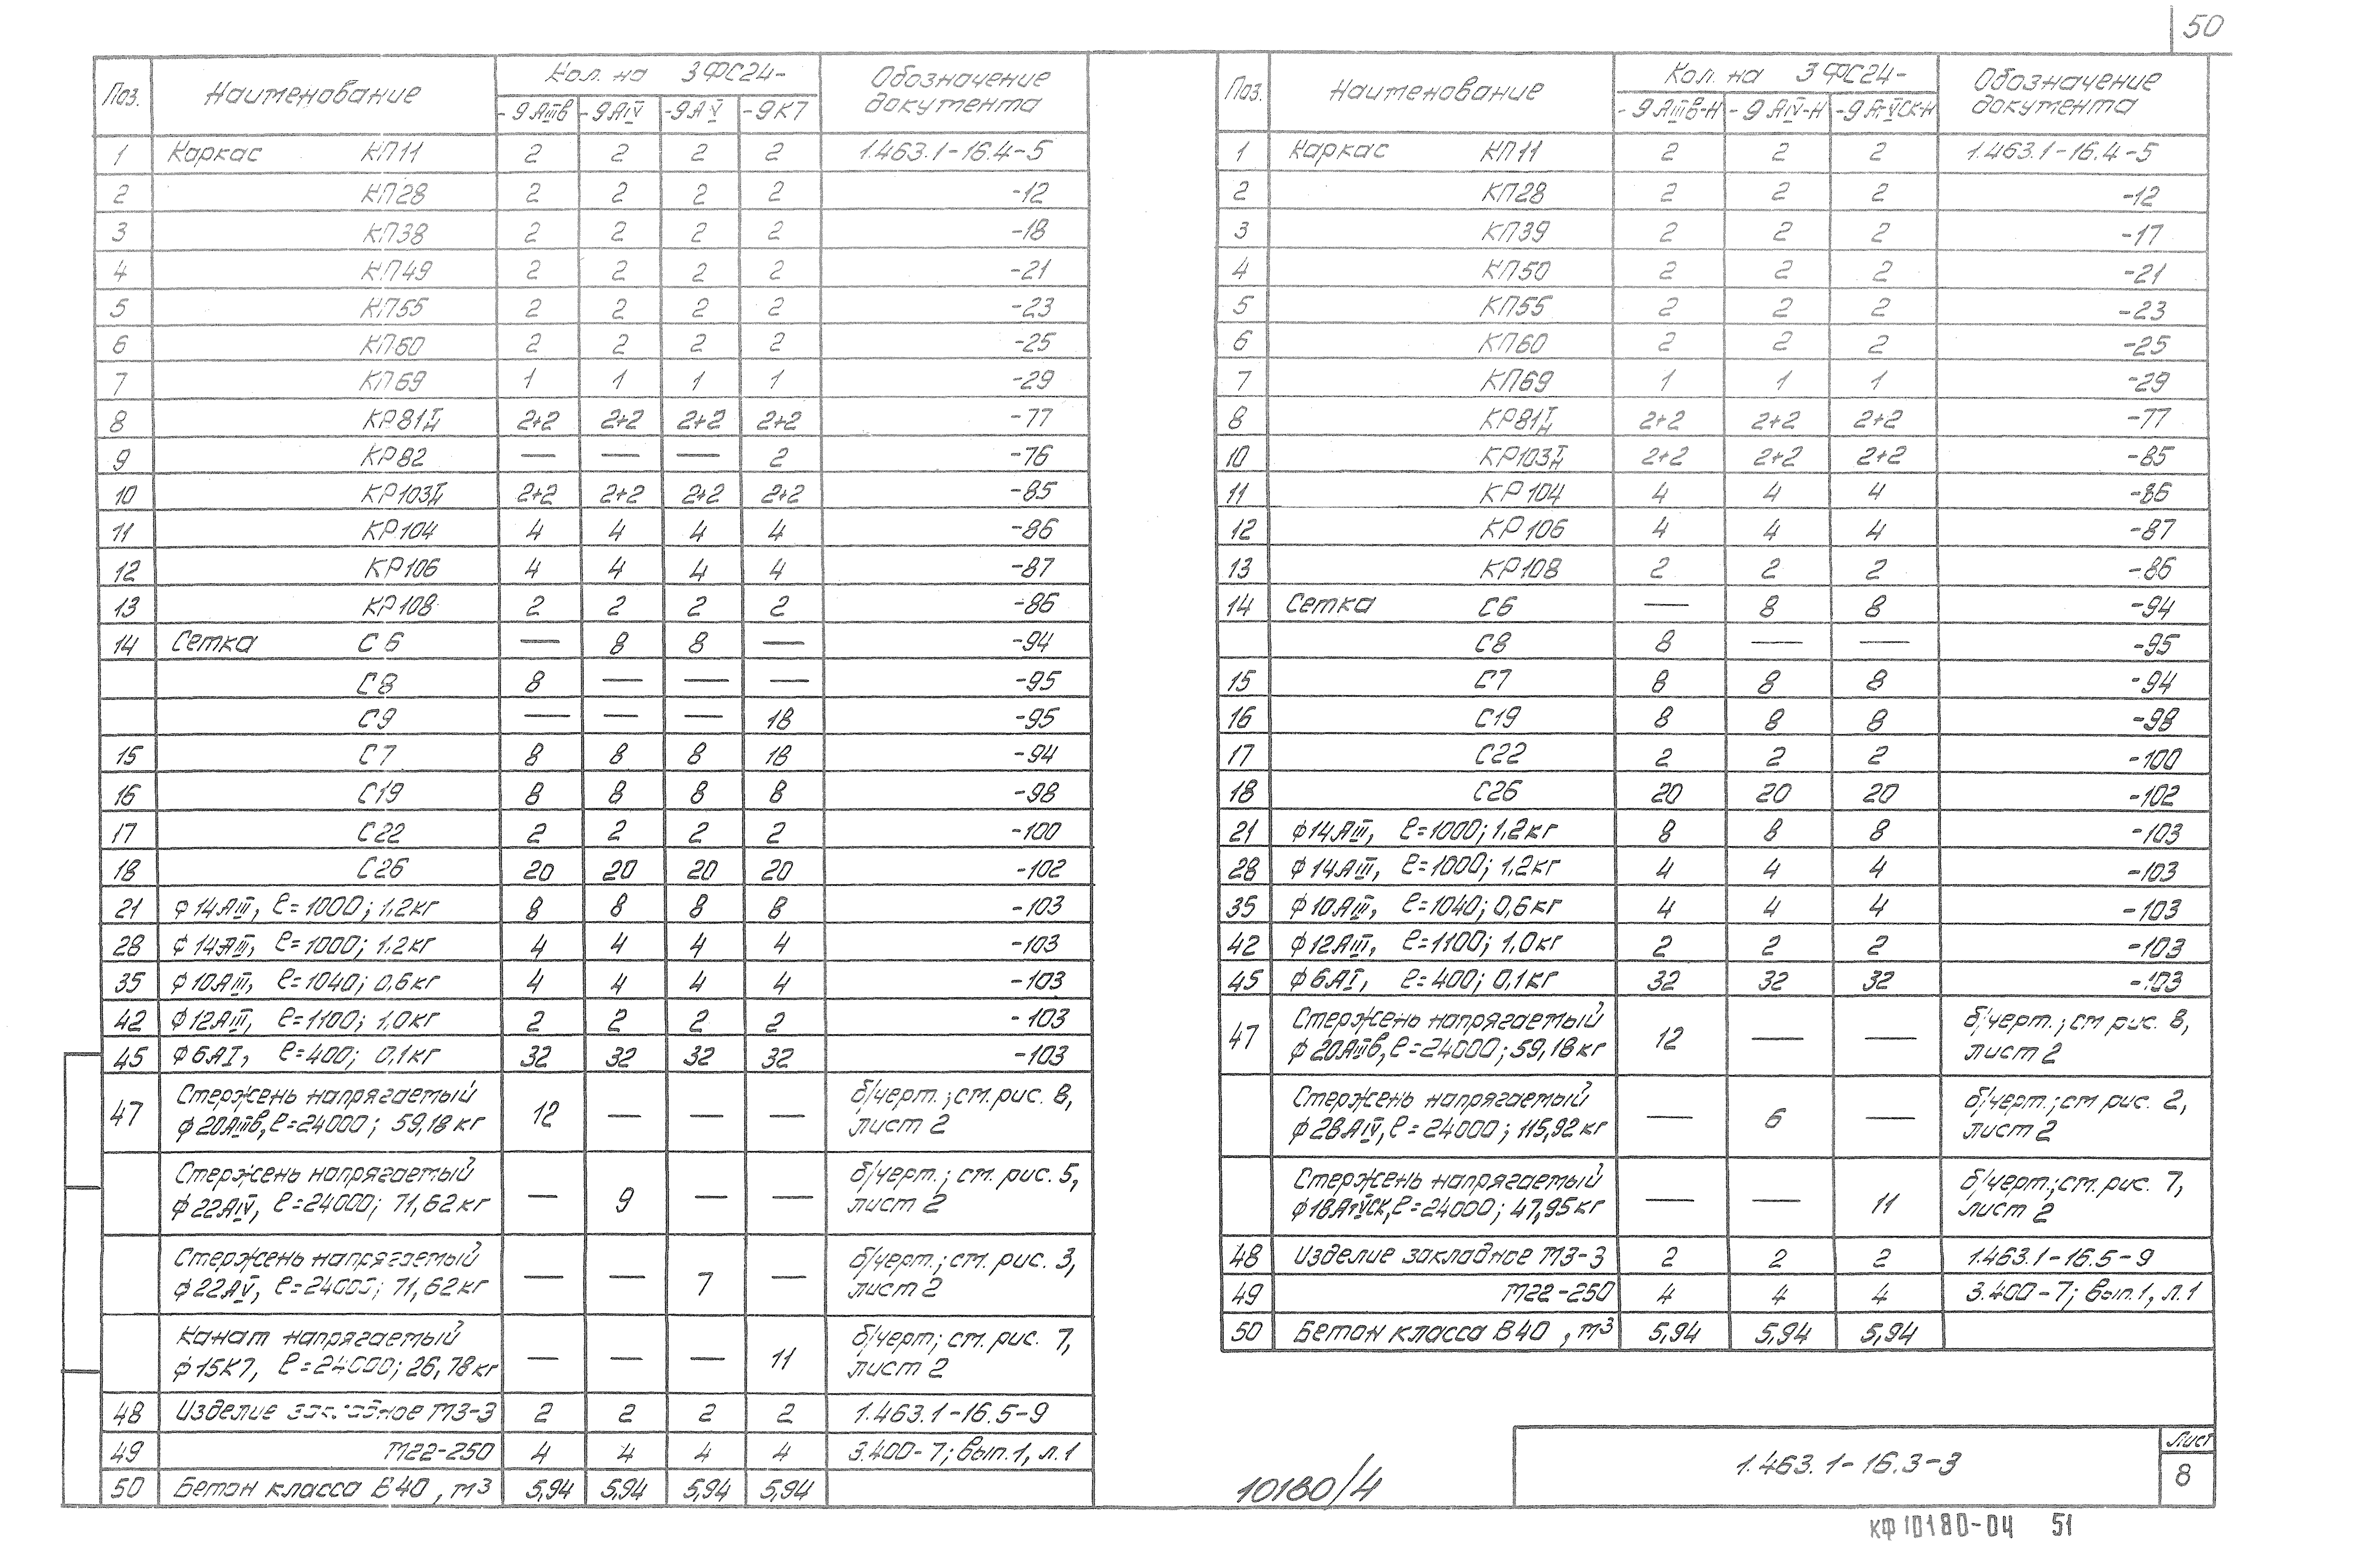 50
Поз. Наименование Кол. на 3ФС24- Обозначение документа
-9АIIIв -9АIV -9АV -9К7
1 Каркас КП11 2 2 2 2 1.463.1-16.4-5
2 КП28 2 2 2 2 -12
3 КП38 2 2 2 2 -18
4 КП49 2 2 2 2 -21
5 КП55 2 2 2 2 -23
6 КП60 2 2 2 2 -25
7 КП69 1 1 1 1 -29
8 КР81I/н 2+2 2+2 2+2 2+2 -77
9 КР82 — — — 2 -76
10 КР103I/н 2+2 2+2 2+2 2+2 -85
11 КР104 4 4 4 4 -86
12 КР106 4 4 4 4 -87
13 КР108 2 2 2 2 -86
14 Сетка С6 — 8 8 — -94
С8 8 — — — -95
С9 — — — 18 -95
15 С7 8 8 8 18 -94
16 С19 8 8 8 8 -98
17 С22 2 2 2 2 -100
18 С26 20 20 20 20 -102
21 ф14АIII, ℓ=1000; 1,2кг 8 8 8 8 -103
28 ф14АIII, ℓ=1000; 1,2кг 4 4 4 4 -103
35 ф10АIII, ℓ=1040; 0,6кг 4 4 4 4 -103
42 ф12АIII, ℓ=1100; 1,0кг 2 2 2 2 -103
45 ф6АI, ℓ=400; 0,1кг 32 32 32 32 -103
47 Стержень напрягаемый 12 — — — б/черт.; см. рис. 8,
ф20АIIIв, ℓ=24000; 59,18кг лист 2
Стержень напрягаемый — 9 — — б/черт.; см. рис. 5,
ф22АIV, ℓ=24000; 71,62кг лист 2
Стержень напрягаемый — — 7 — б/черт.; см. рис. 3,
ф22АV, ℓ=24000; 71,62кг лист 2
Канат напрягаемый — — — 11 б/черт; см. рис. 7,
ф15К7, ℓ=24000; 26,78кг лист 2
48 Изделие закладное М3-3 2 2 2 2 1.463.1-16.5-9
49 М22-250 4 4 4 4 3.400-7; вып.1, л.1
50 Бетон класса В40, м3 5,94 5,94 5,94 5,94
Поз. Наименование Кол. на 3ФС24- Обозначение документа
-9АIIIв-Н -9АIV-Н -9АтVСК-Н
1 Каркас КП11 2 2 2 1.463.1-16.4-5
2 КП28 2 2 2 -12
3 КП39 2 2 2 -17
4 КП50 2 2 2 -21
5 КП55 2 2 2 -23
6 КП60 2 2 2 -25
7 КП69 1 1 1 -29
8 КР81I/н 2+2 2+2 2+2 -77
10 КР103I/н 2+2 2+2 2+2 -85
11 КР104 4 4 4 -86
12 КР106 4 4 4 -87
13 КР108 2 2 2 -86
14 Сетка С6 — 8 8 -94
С8 8 — — -95
15 С7 8 8 8 -94
16 С19 8 8 8 -98
17 С22 2 2 2 -100
18 С26 20 20 20 -102
21 ф14АIII, ℓ=1000; 1,2кг 8 8 8 -103
28 ф14АIII, ℓ=1000; 1,2кг 4 4 4 -103
35 ф10АIII, ℓ=1040; 0,6кг 4 4 4 -103
42 ф12АIII, ℓ=1100; 1,0кг 2 2 2 -103
45 ф6АI, ℓ=400; 0,1кг 32 32 32 -103
47 Стержень напрягаемый 12 — — б/черт.; см рис. 8,
ф20АIIIв, ℓ=24000; 59,18кг лист 2
Стержень напрягаемый — 6 — б/черт.; см рис. 2,
ф28АIV, ℓ=24000; 115,92кг лист 2
Стержень напрягаемый — — 11 б/черт.; см. рис. 7,
ф18АтVСК, ℓ=24000; 47,95кг лист 2
48 Изделие закладное М3-3 2 2 2 1.463.1-16.5-9
49 М22-250 4 4 4 3.400-7; вып.1, л.1
50 Бетон класса В40, м3 5,94 5,94 5,94
10180/4
1.463.1-16.3-3
Лист
8
КФ10180-04 51